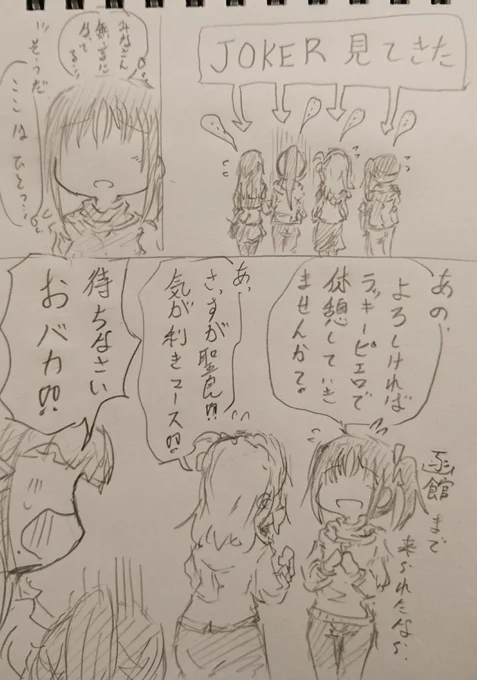 JOKER 見てきた
みなさん
無言に
なってる…
そうだ
ここはひとつ…
函館まで
来られたなら、
あの、
よろしければ
ラッキーピエロで
休憩していき
ませんか？
あ、
さっすが聖良!!
気が利きマース!!
待ちなさい
おバカ!!